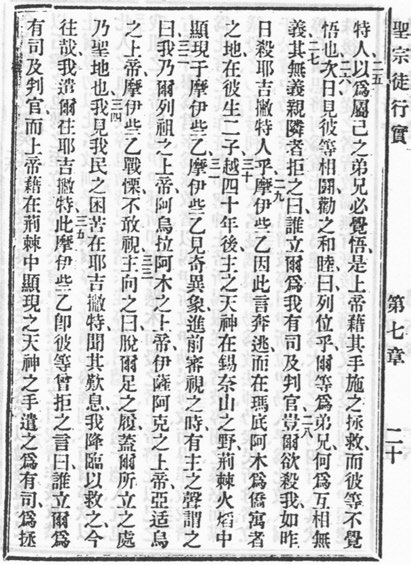 聖宗徒行實 第七章 二十
特人、二五以爲屬己之弟兄必覺悟是上帝藉其手施之拯救而彼等不覺
悟也、二六次日見彼等相鬪勸之和睦曰、列位乎爾等爲弟兄何爲互相無
義、二七其無義親隣者拒之曰、誰立爾爲我有司及判官、二八豈爾欲殺我如昨
日殺耶吉撇特人乎、二九摩伊些乙因此言奔逃而在瑪底阿木爲僑寓者
之地在彼生二子、三十越四十年後主之天神在錫奈山之野荊棘火焰中
顯現于摩伊些乙、三一摩伊些乙見奇異象進前審視之時有主之聲謂之
曰、三二我乃爾列祖之上帝阿烏拉阿木之上帝伊薩阿克之上帝亞适烏
之上帝、摩伊些乙戰慄不敢視、三三主向之曰、脫爾足之履、蓋爾所立之處
乃聖地也、三四我見我民之困苦在耶吉撇特、聞其歎息、我降臨以救之、今
往哉、我遣爾往耶吉撇特、三五此摩伊些乙卽彼等曾拒之言曰、誰立爾爲
有司及判官、而上帝藉在荊棘中顯現之天神之手遣之爲有司、爲拯